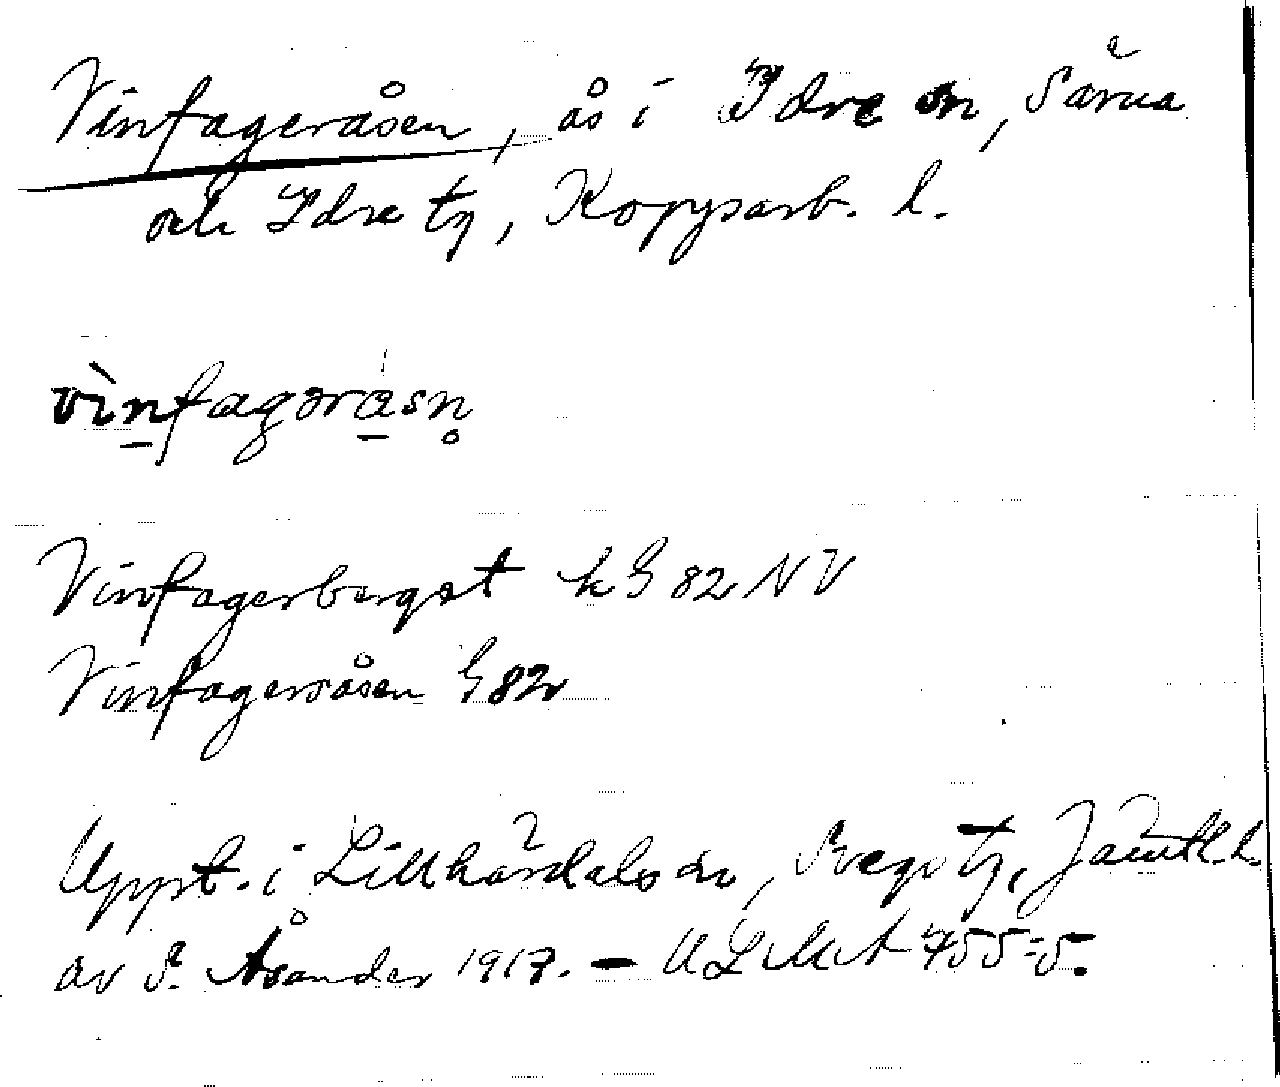 Vinfageråsen, ås i Idre sn, Särna
och Idre tg, Kopparb. l.
vìnfagəråsn̥
Vinfagerberget k G 82 NV
Vinfageråsen G 82
Uppt. i Lillhärdals sn, Svegs tg, Jämtl. l.
av S. Åsander 1917. – ULMA 455:5.